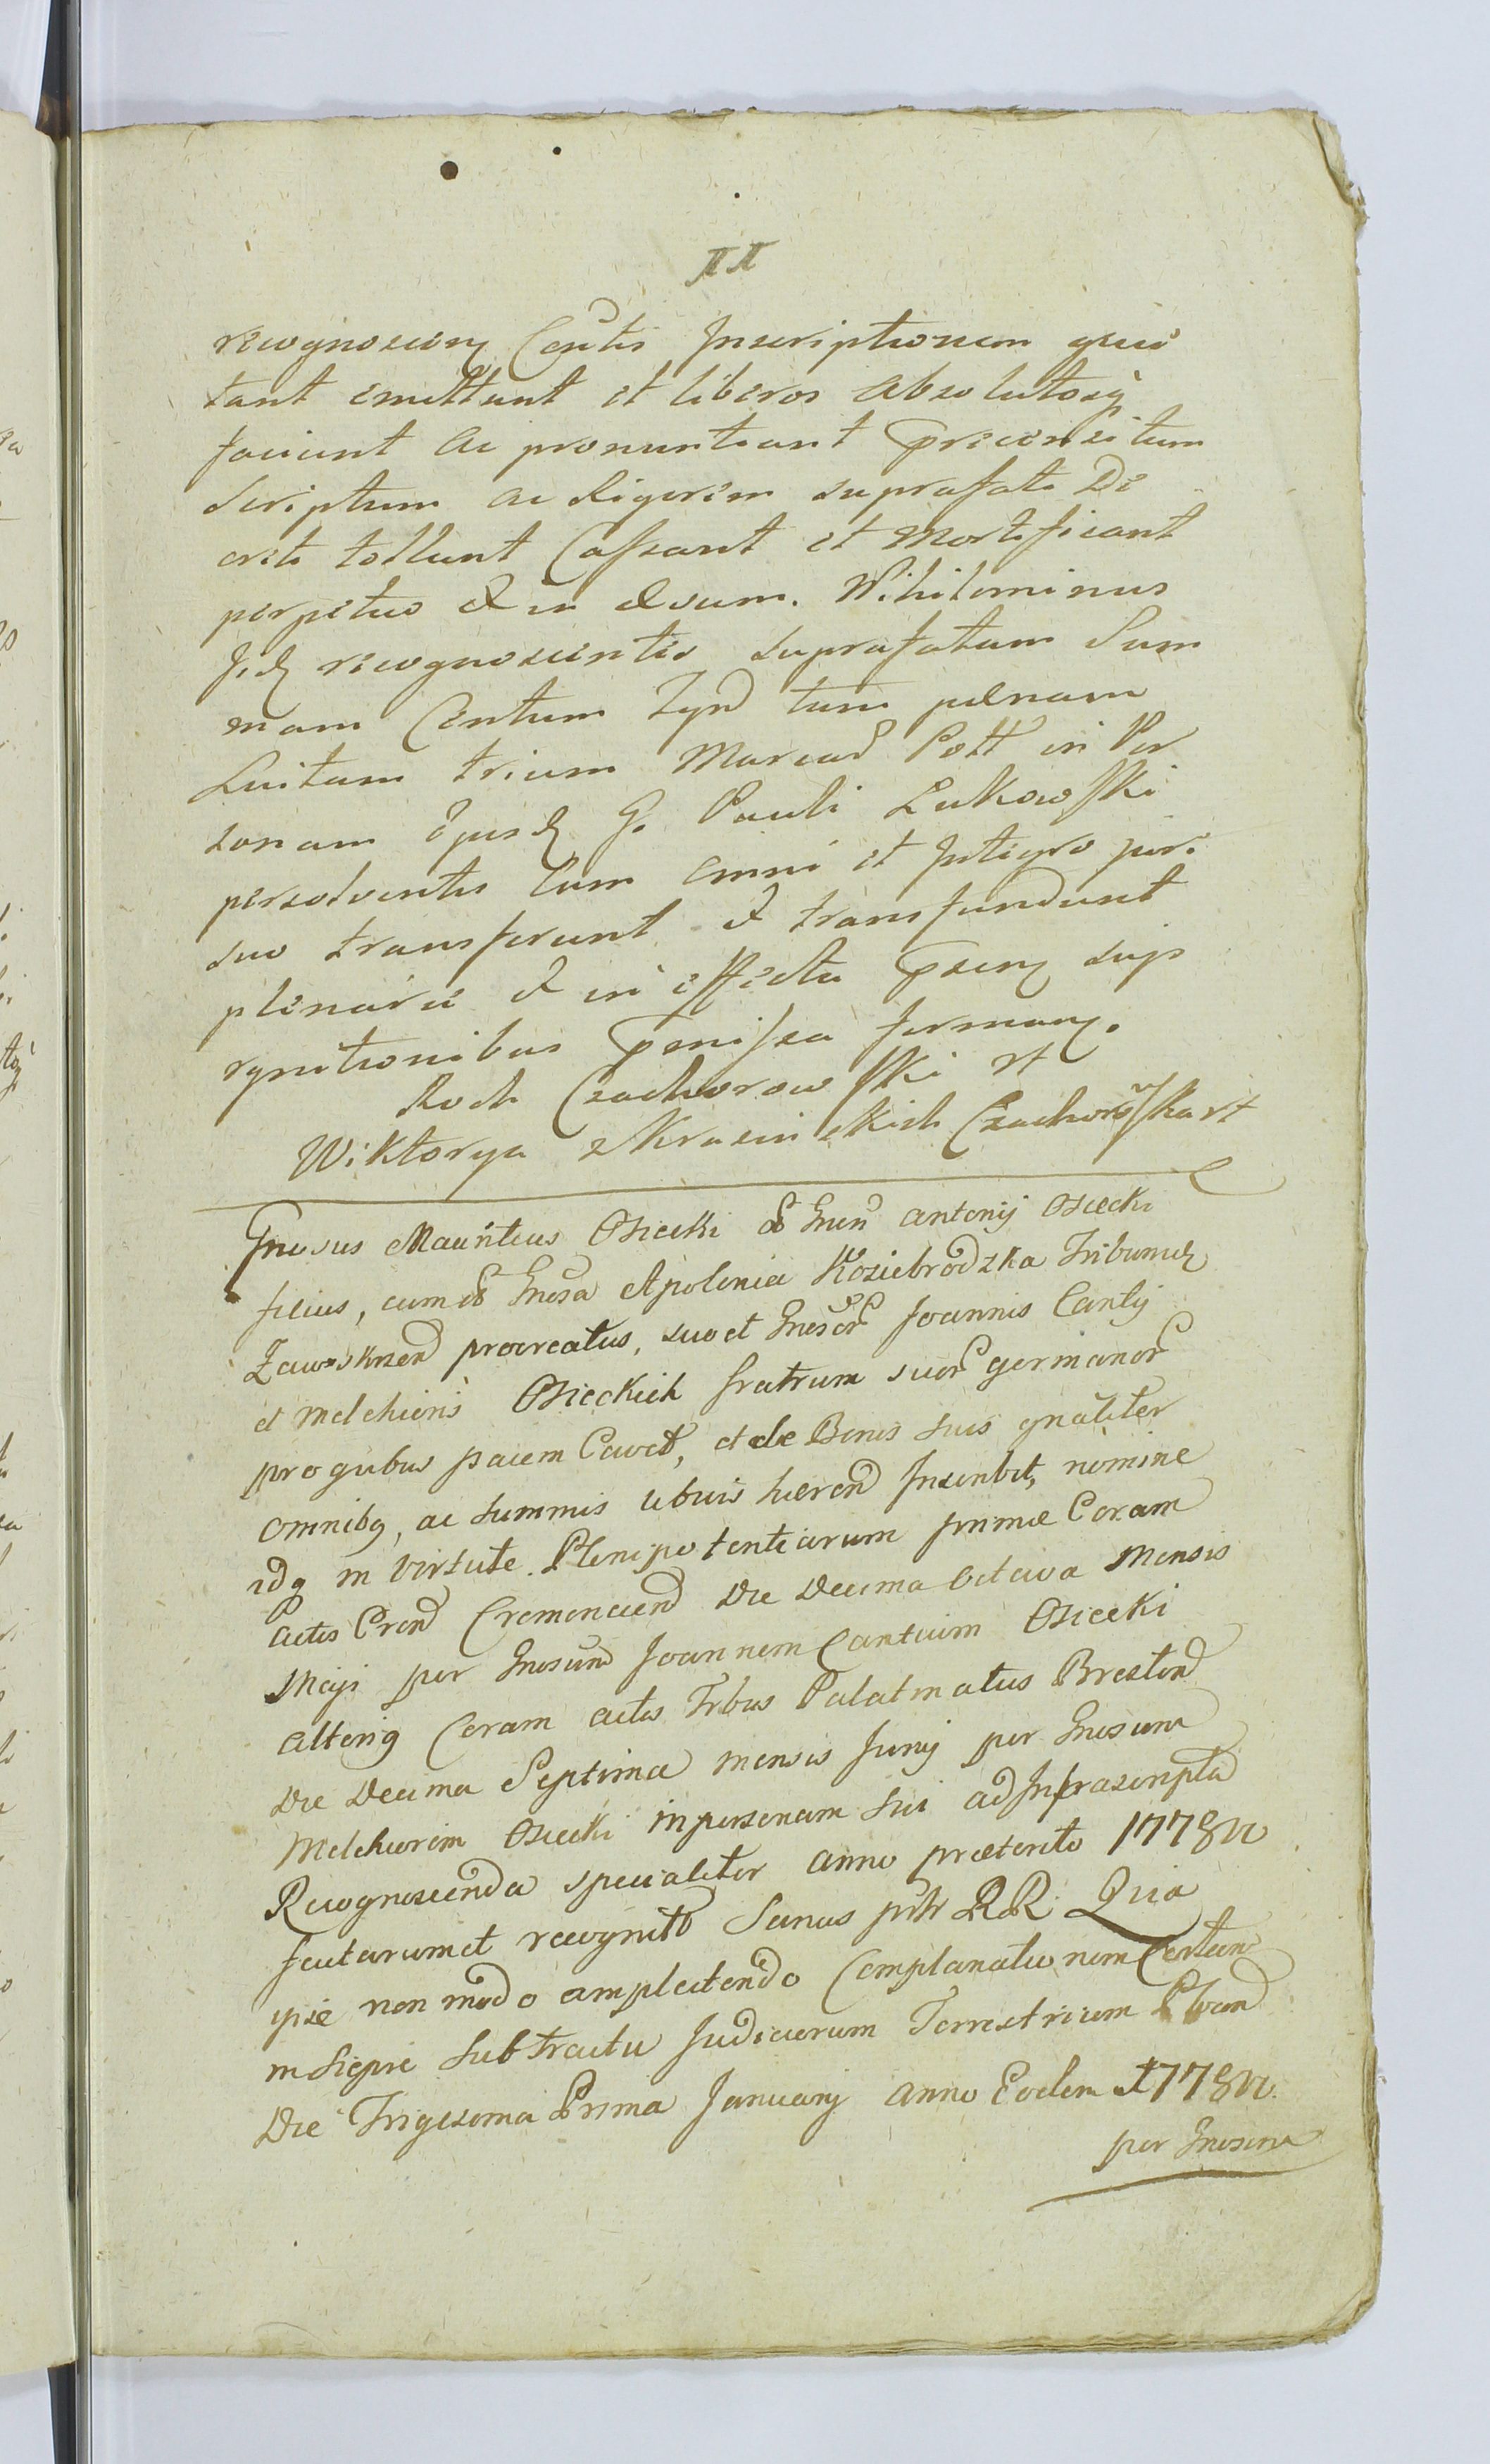 11
recognoscen Centis Inscriptionem quie
tant emittunt et liberos absolutosq
faciunt ac pronuntiant preconsitum
Scriptum ac Rigorem suprafati De
creti tollunt Cassant et Mortificant
perpetuo & in ævum. Nihilominus
recognoscentes suprafatam Sum
mam Centum tum pænam
Luitam trium Marcar Poll in Per
sonam G. Pauli Łukowski
persolventis Cum omni et Integro jure
suo transferunt & transfundunt
plenarie & in effectu
rgnitionibus
Roch Czachorowski
Wiktorya z Krasinskich Czachorowska
Gnosus Mauritius Osiecki Antonij Osiecki
filius, cum Gnosa Apolonia Koziebrodzka
Zawskrzen procreatus, suo et Gnosor Joannis Cantij
et Melchioris Osieckich fratrum suor germanor
progubus pacem Cavet, et de Bonis suis gnaliter
omnibq, ac Summis ubuis hæren Inscribit, nomine
idq in Virtute Plenipotentiarum primæ Coram
actis Cremenecen Die Decima Octava Mensis
Maji per Gnosum Joannem Cantium Osiecki
alteriq Coram actis Palatinatus Bresten
Die Decima Septima mensis Junij per Gnosum
Melchiorem Osiecki in personam sui ad Infrascripta
Recognoscenda specialiter anno præterito 1778vo
factarum et recognit Sanus RR Quia
ipse non modo amplectendo Complanationem Certam
in Siepre Sub tractu Judiciorum Terrestrium
Die Trigesima Prima Januarij anno Eodem 1778vo.
per Gnosum